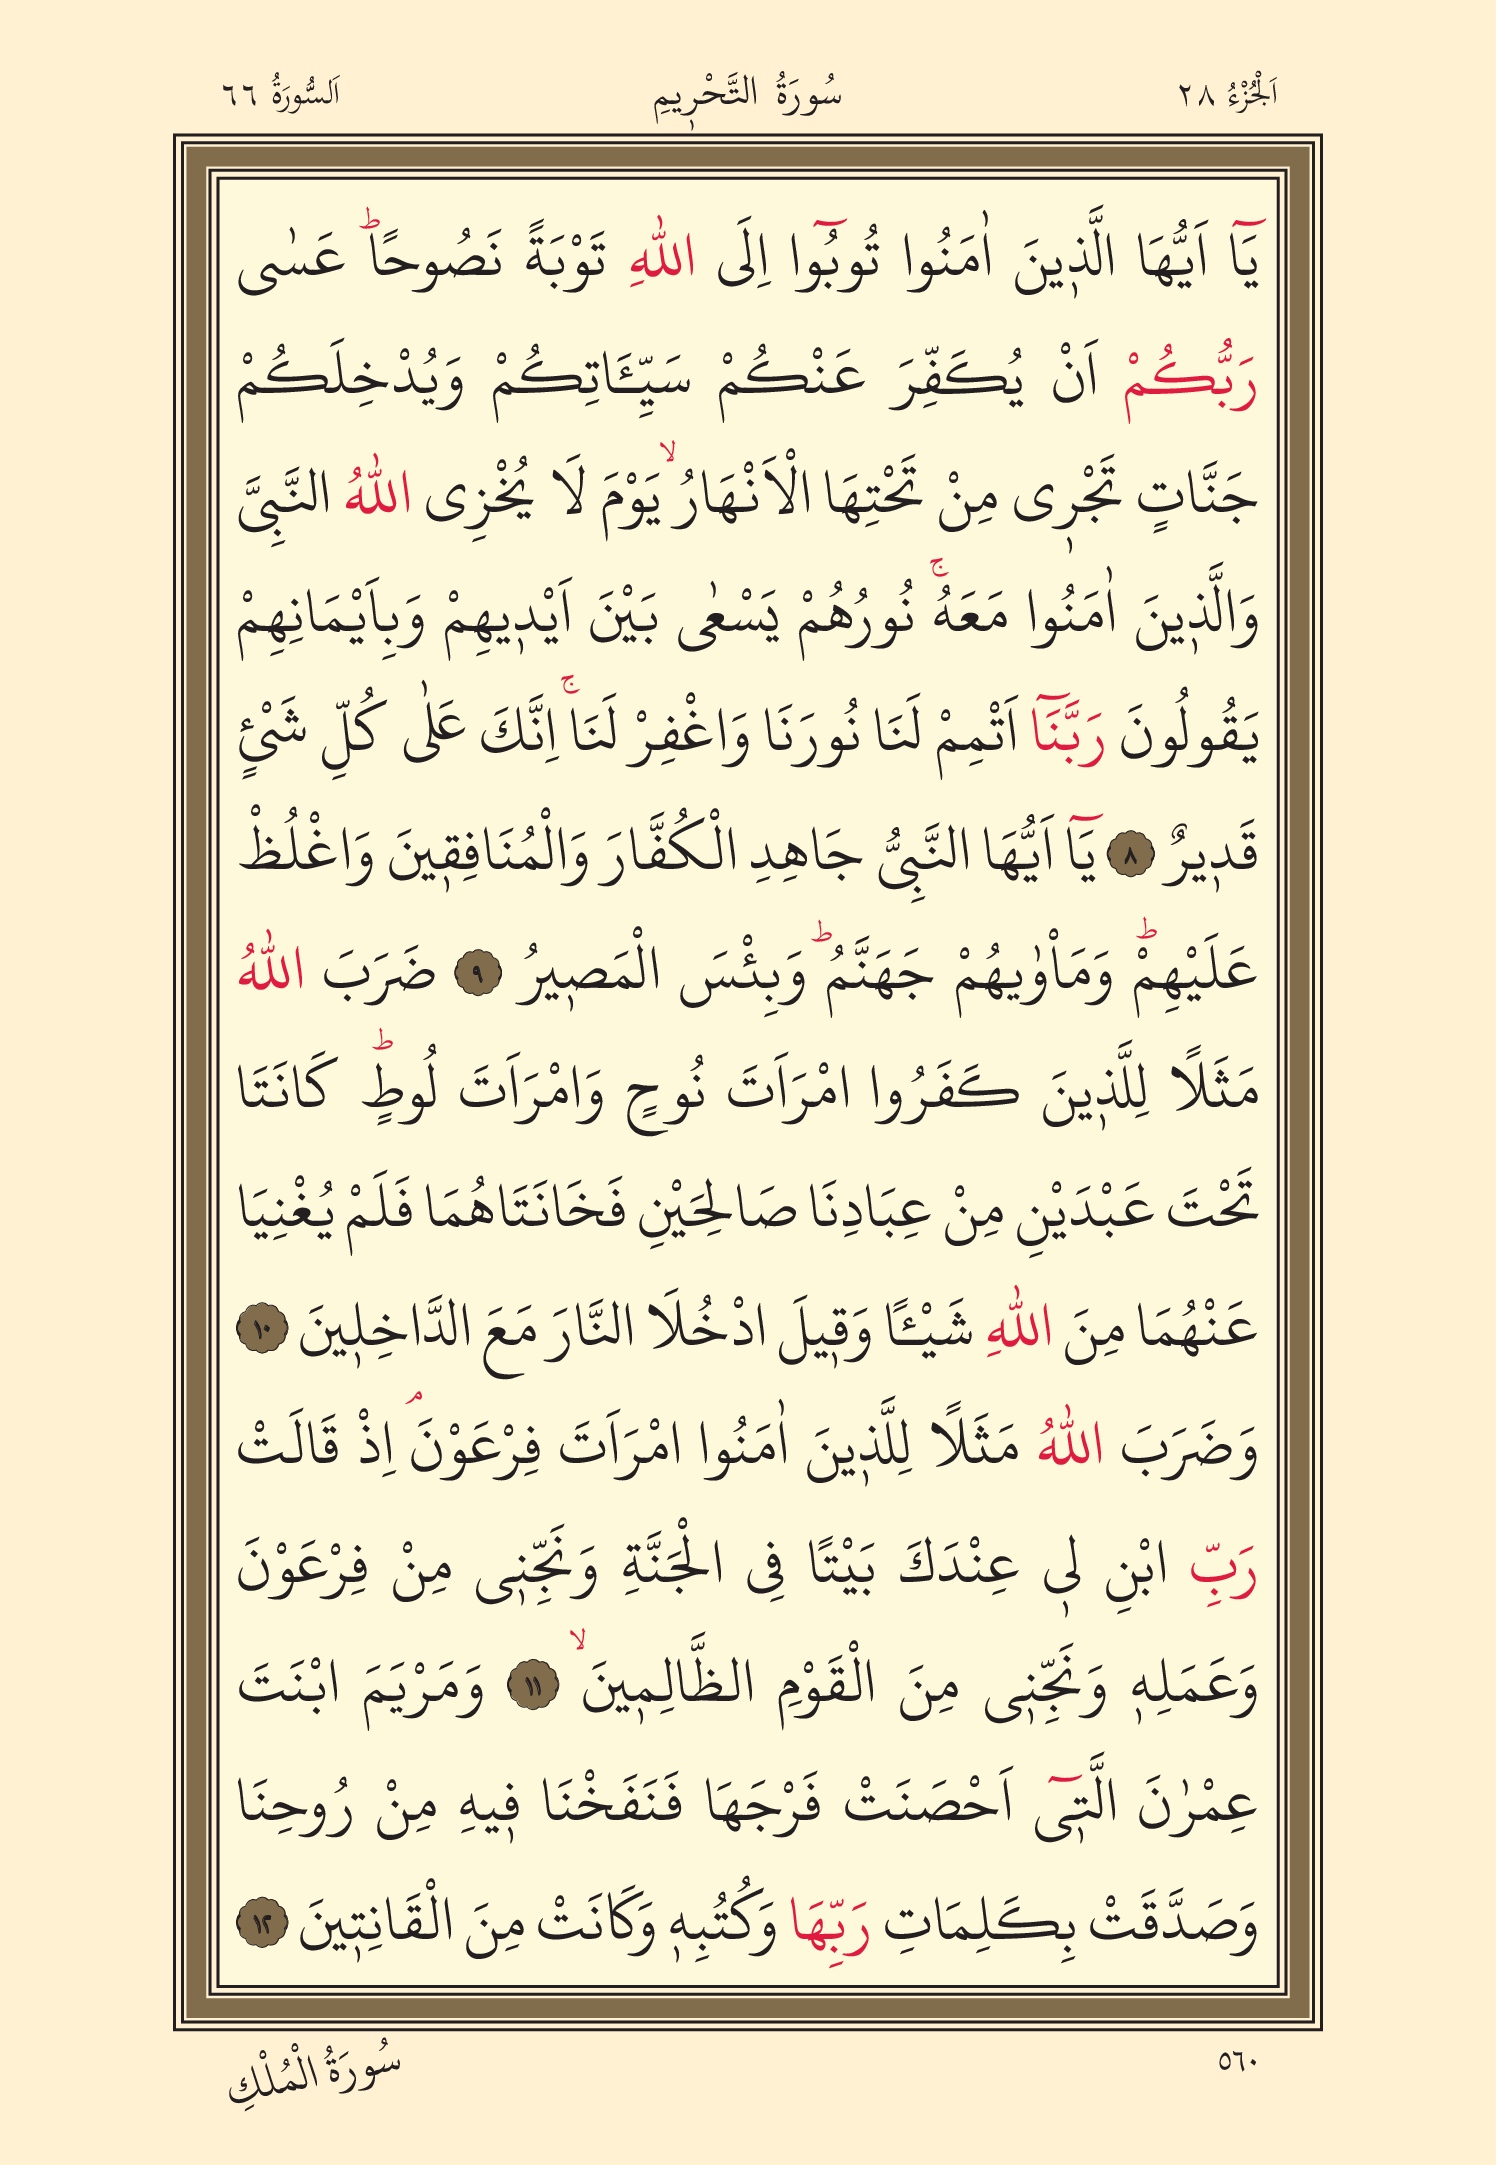 اَلْجُزْءُ ٢٨ سُورَةُ التَّحْرٖيمِ اَلسُّورَةُ ٦٦
يَٓا اَيُّهَا الَّذٖينَ اٰمَنُوا تُوبُٓوا اِلَى اللّٰهِ تَوْبَةً نَصُوحًاؕ عَسٰى
رَبُّكُمْ اَنْ يُكَفِّرَ عَنْكُمْ سَيِّـَٔاتِكُمْ وَيُدْخِلَكُمْ
جَنَّاتٍ تَجْرٖى مِنْ تَحْتِهَا الْاَنْهَارُۙ يَوْمَ لَا يُخْزِى اللّٰهُ النَّبِىَّ
وَالَّذٖينَ اٰمَنُوا مَعَهُۚ نُورُهُمْ يَسْعٰى بَيْنَ اَيْدٖيهِمْ وَبِاَيْمَانِهِمْ
يَقُولُونَ رَبَّنَٓا اَتْمِمْ لَنَا نُورَنَا وَاغْفِرْ لَنَاۚ اِنَّكَ عَلٰى كُلِّ شَىْءٍ
قَدٖيرٌ ٨ يَٓا اَيُّهَا النَّبِىُّ جَاهِدِ الْكُفَّارَ وَالْمُنَافِقٖينَ وَاغْلُظْ
عَلَيْهِمْؕ وَمَاْوٰيهُمْ جَهَنَّمُؕ وَبِئْسَ الْمَصٖيرُ ٩ ضَرَبَ اللّٰهُ
مَثَلًا لِلَّذٖينَ كَفَرُوا امْرَاَتَ نُوحٍ وَامْرَاَتَ لُوطٍؕ كَانَتَا
تَحْتَ عَبْدَيْنِ مِنْ عِبَادِنَا صَالِحَيْنِ فَخَانَتَاهُمَا فَلَمْ يُغْنِيَا
عَنْهُمَا مِنَ اللّٰهِ شَيْـًٔا وَقٖيلَ ادْخُلَا النَّارَ مَعَ الدَّاخِلٖينَ ١٠
وَضَرَبَ اللّٰهُ مَثَلًا لِلَّذٖينَ اٰمَنُوا امْرَاَتَ فِرْعَوْنَۢ اِذْ قَالَتْ
رَبِّ ابْنِ لٖى عِنْدَكَ بَيْتًا فِى الْجَنَّةِ وَنَجِّنٖى مِنْ فِرْعَوْنَ
وَعَمَلِهٖ وَنَجِّنٖى مِنَ الْقَوْمِ الظَّالِمٖينَۙ ١١ وَمَرْيَمَ ابْنَتَ
عِمْرٰنَ الَّتٖٓى اَحْصَنَتْ فَرْجَهَا فَنَفَخْنَا فٖيهِ مِنْ رُوحِنَا
وَصَدَّقَتْ بِكَلِمَاتِ رَبِّهَا وَكُتُبِهٖ وَكَانَتْ مِنَ الْقَانِتٖينَ ١٢
٥٦٠ سُورَةُ الْمُلْكِ